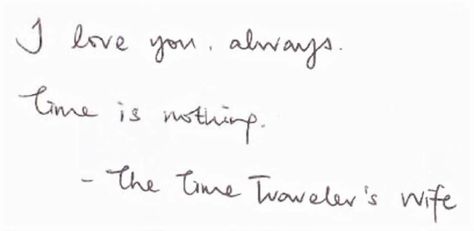 I love you. always.
time is nothing.
- The Time Traveler's Wife